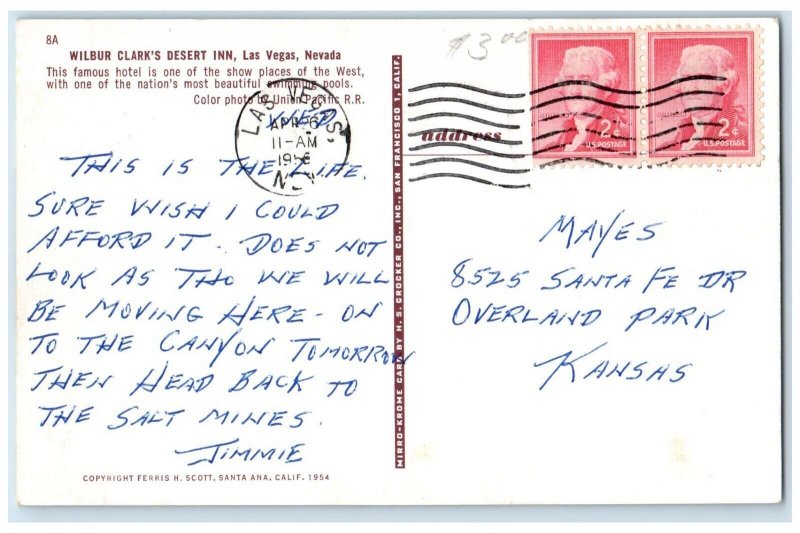 8A
WILBUR CLARK'S DESERT INN, Las Vegas, Nevada
This famous hotel is one of the show places of the West,
with one of the nation's most beautiful swimming pools.
Color photo by Union Pacific R.R.
WED
THIS IS THE LIFE.
SURE WISH I COULD
AFFORD IT. DOES NOT
LOOK AS THO WE WILL
BE MOVING HERE - ON
TO THE CANYON TOMORROW
THEN HEAD BACK TO
THE SALT MINES.
JIMMIE
COPYRIGHT FERRIS H. SCOTT, SANTA ANA, CALIF. 1954
MIRRO-KROME CARD BY H. S. CROCKER CO., INC., SAN FRANCISCO 1, CALIF.
LAS VEGAS,
APR
11-AM
NEV
$3.00
address
2¢ 2¢
U.S. POSTAGE U.S. POSTAGE
MAYES
8525 SANTA FE DR
OVERLAND PARK
KANSAS